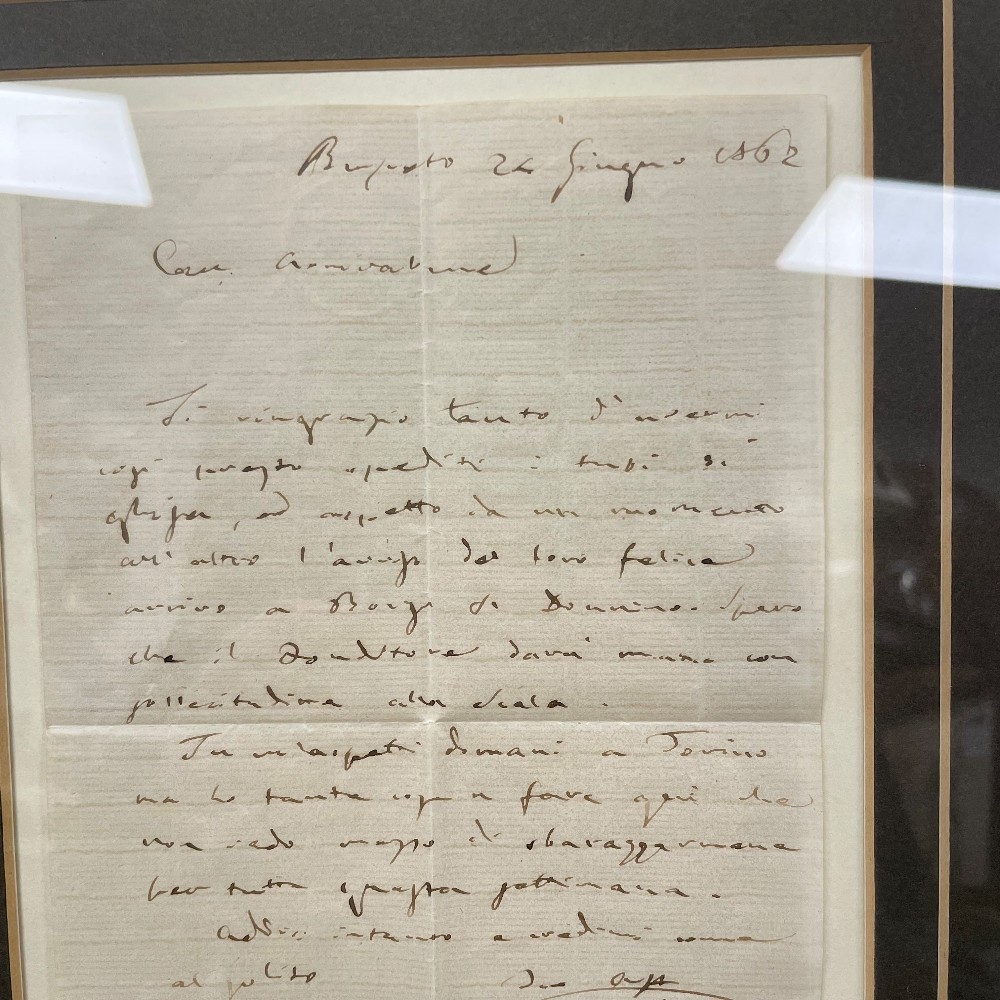 Busseto 24 Giugno 1862
Caro Arrivabene
Ti ringrazio tanto d'avermi
così presto spediti i tubi di
ghisa, ed aspetto da un momento
all'altro l'avviso del loro felice
arrivo a Borgo S. Donnino. Spero
che il Fonditore darà mano con
sollecitudine alla Scala.
Tu m'aspetti domani a Torino
ma ho tante cose a fare qui che
non vedo mezzo di sbarazzarmene
per tutta questa settimana.
Addio intanto e credimi come
al solito